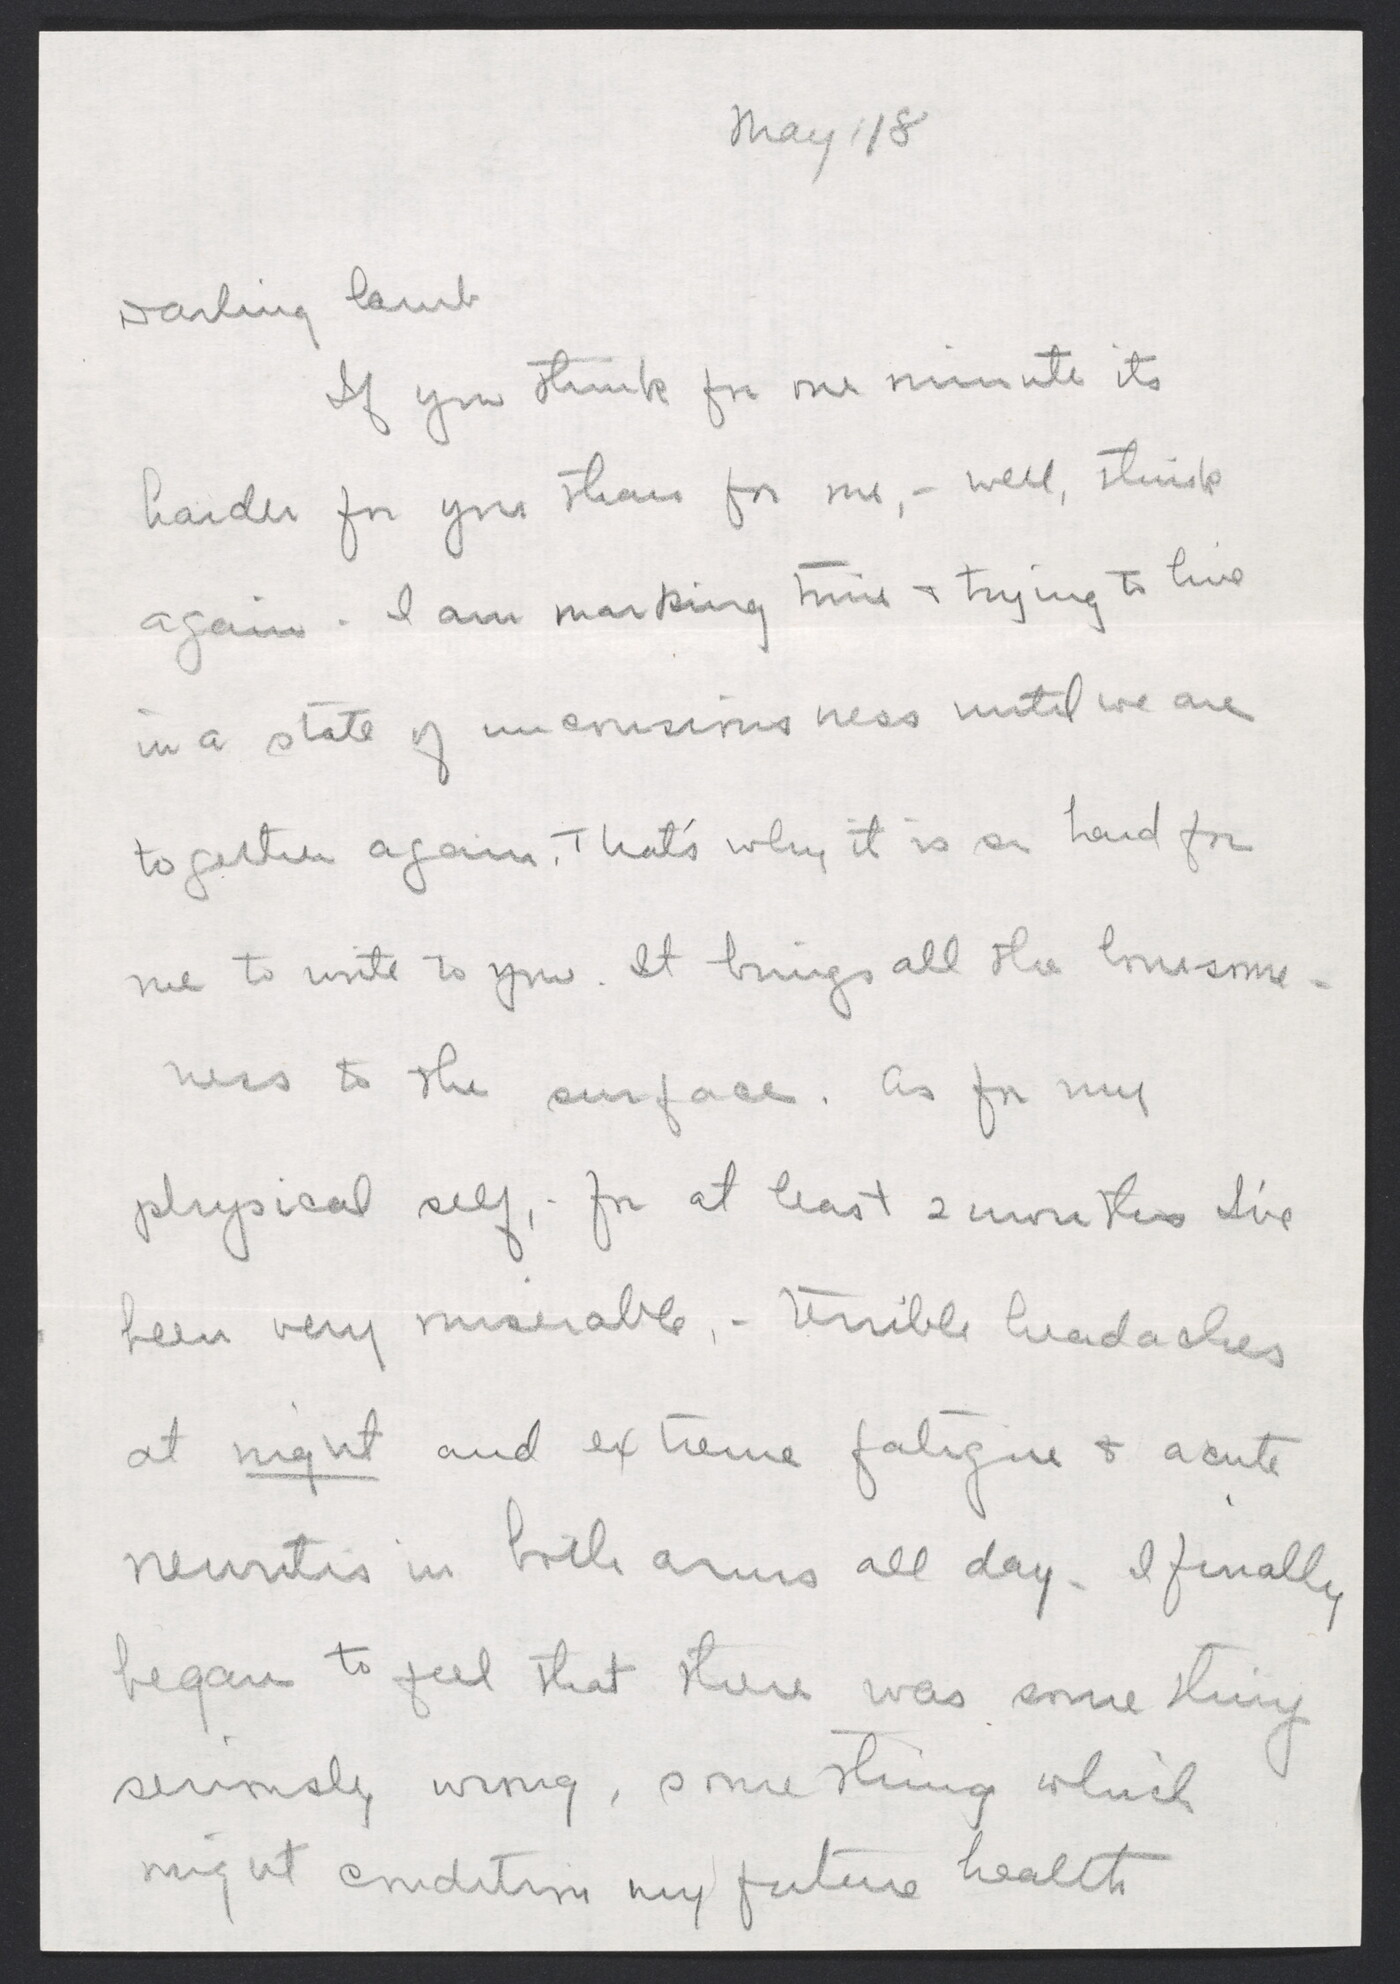 May 18
Darling lamb
If you think for one minute its
harder for you than for me, - well, think
again. I am marking time + trying to live
in a state of unconsiousness until we are
together again. That's why it is so hard for
me to write to you. It brings all the lonesome-
ness to the surface. As for my
physical self, - for at least 2 months I've
been very miserable, - terrible headaches
at night and extreme fatigue + acute
neuritis in both arms all day - I finally
began to feel that there was something
seriously wrong, something which
might condition my future health